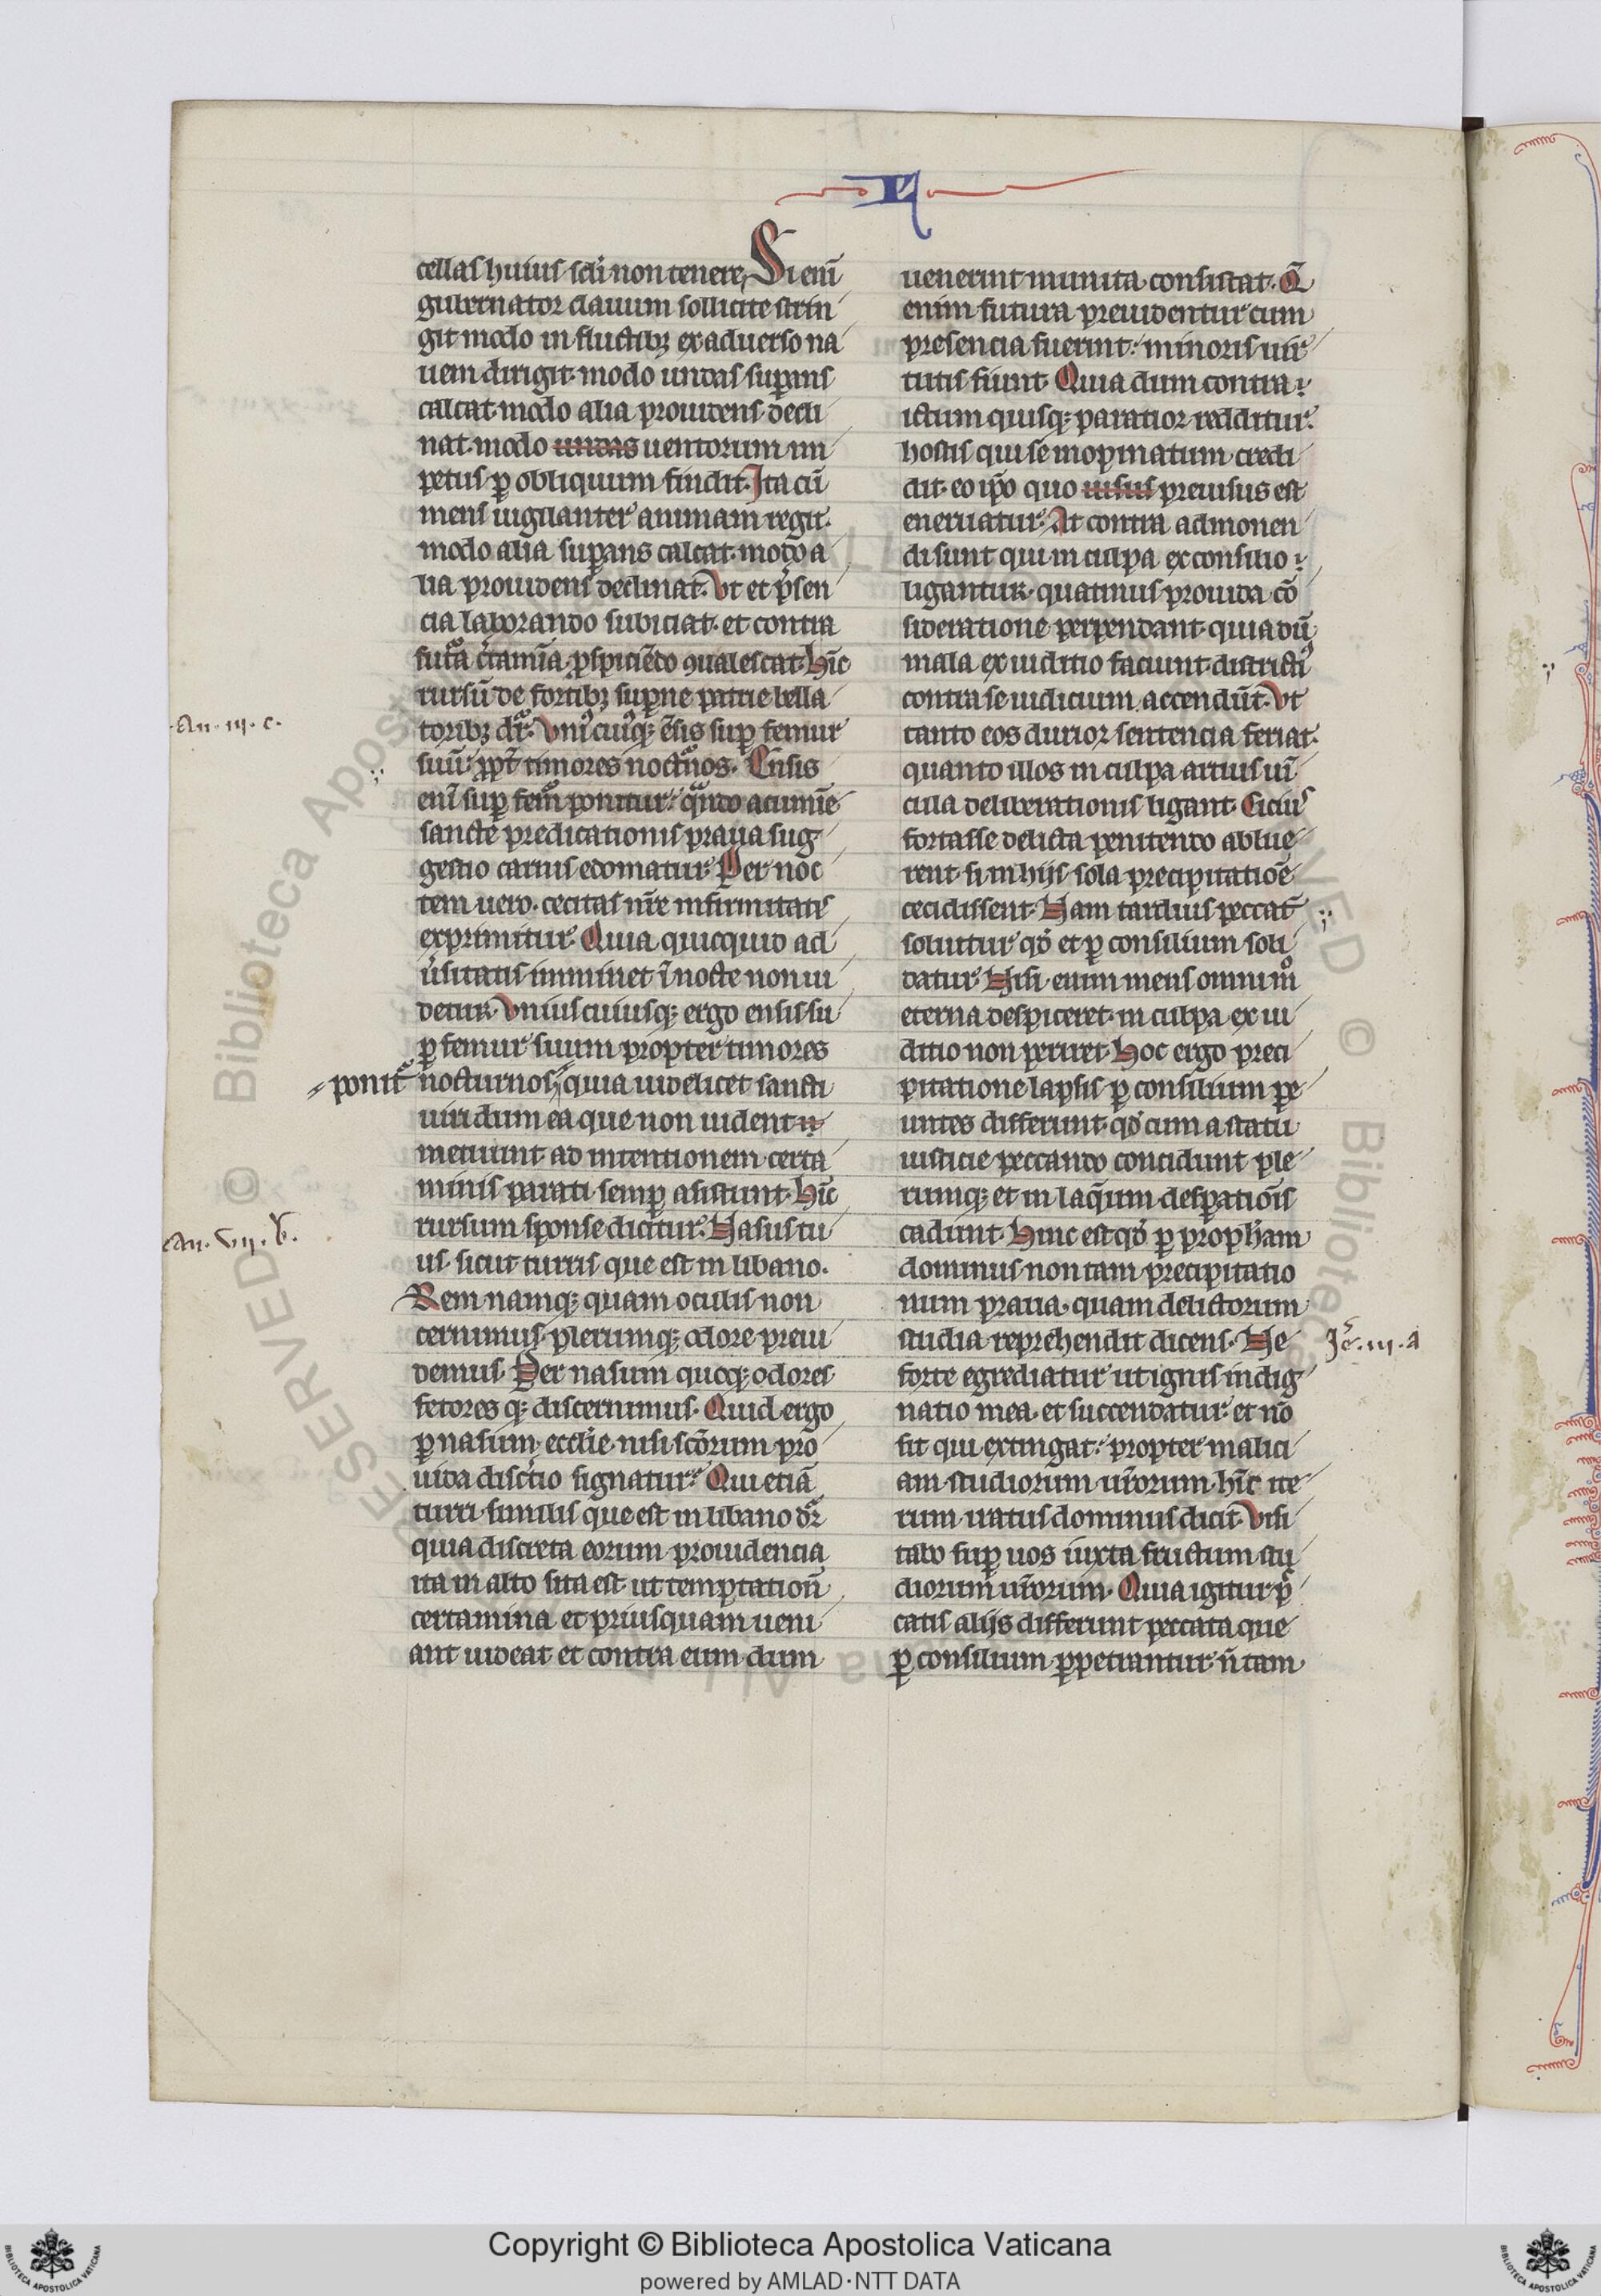 cellas huius scl'i non tenere. Si eni͂
gubernator clauum sollicite strin
git modo in fluctib; ex aduerso na
uem dirigit. modo undas sup̱ans
calcat. modo alia prouidens decli
nat. modo undas uentorum im
petus p̱ obliquum findit. Ita cu͂
mens uigilanter animam regit.
modo alia sup̱ans calcat. modo a
lia prouidens declinat. Vt et p̓sen
cia laborando subiciat. et contra
fut᷑a c̓tamĩa ꝓspiciẽdo ꝯualescat. Hĩc
rursũ de fortib; sup̱ne patrie bella
torib; dr̃. Vniꝰcuiꝰq; ẽsis sup̱ femur
suũ. ꝓpt̓ timores noct᷑nos. Ensis
eni͂ sup̱ fem᷑ ponitur. qñdo acumĩe
sancte predicationis praua sug
gestio carnis edomatur. Per noc
tem uero. cecitas nr̃e infirmitatis
exprimitur. Quia quicquid ad
u̓sitatis imminet ĩ nocte non ui
detur. Vniuscuiusq; ergo ensis su
p̱ femur suum propter timores
ponit᷑ nocturnos. quia uidelicet sancti
uiri dum ea que non uident n̄
metuunt ad intentionem certa
minis parati semp̱ asistunt. Hĩc
rursum sponse dicitur. Nasus tu
us. sicut turris que est in libano.
Rem namq; quam oculis non
cernimus. plerumq; odore preui
demus. Per nasum quoq; odores
fetores q; discernimus. Quid ergo
p̱ nasum ecclie. nisi scõrum pro
uida discr̓tio signatur. Qui etiã
turri similis que est in libano dr̃
quia discreta eorum prouidencia
ita in alto sita est. ut temptationũ
certamina et priusquam ueni
ant uideat et contra eum dum
uenerint munita consistat. Q̃
enim futura preuidentur cum
presencia fuerint. minoris uir
tutis fiunt. Quia dum contra
ictum quisq; paratior redditur.
hostis qui se inopinatum credi
dit. eo ip̃o quo uisus preuisus est
eneruatur. At contra admonen
di sunt qui in culpa ex consilio
ligantur. quatinus prouida cõ
sideratione perpendant. quia dũ
mala ex iuditio faciunt districtiꝰ
contra se iudicium accendũt. Vt
tanto eos durior sentencia feriat.
quanto illos in culpa artius uĩ
cula deliberationis ligant. Ciciꝰ
fortasse delicta penitendo ablue
rent. si in hijs sola precipitatiõe
cecidissent. Nam tardius peccat̄
soluitur qd̓ et p̱ consilium soli
datur. Nisi enim mens omnimͦ
eterna despiceret. in culpa ex iu
ditio non periret. Hoc ergo preci
pitatione lapsis p̱ consilium pe
untes differunt. qd̓ cum a statu
iusticie peccando concidunt ple
rumq; et in laq̃um desp̱atiõis
cadunt. Hinc est qd̓ p̱ proph̃am
dominus non tam precipitatio
num praua. quam delictorum
studia reprehendit dicens. Ne
forte egrediatur ut ignis indig
natio mea. et succendatur et nõ
sit qui extingat. propter malici
am studiorum ur̃orum. Hĩc ite
rum iratus dominus dicit. Visi
tabo sup̱ uos iuxta fructum stu
diorum ur̃orum. Quia igitur p̱
catis alijs differunt peccata que
p̱ consilium p̱petrantur. ñ tam
can. iij. c.
can. vij. b.
Je͂. iiij. a
Copyright © Biblioteca Apostolica Vaticana
powered by AMLAD·NTT DATA